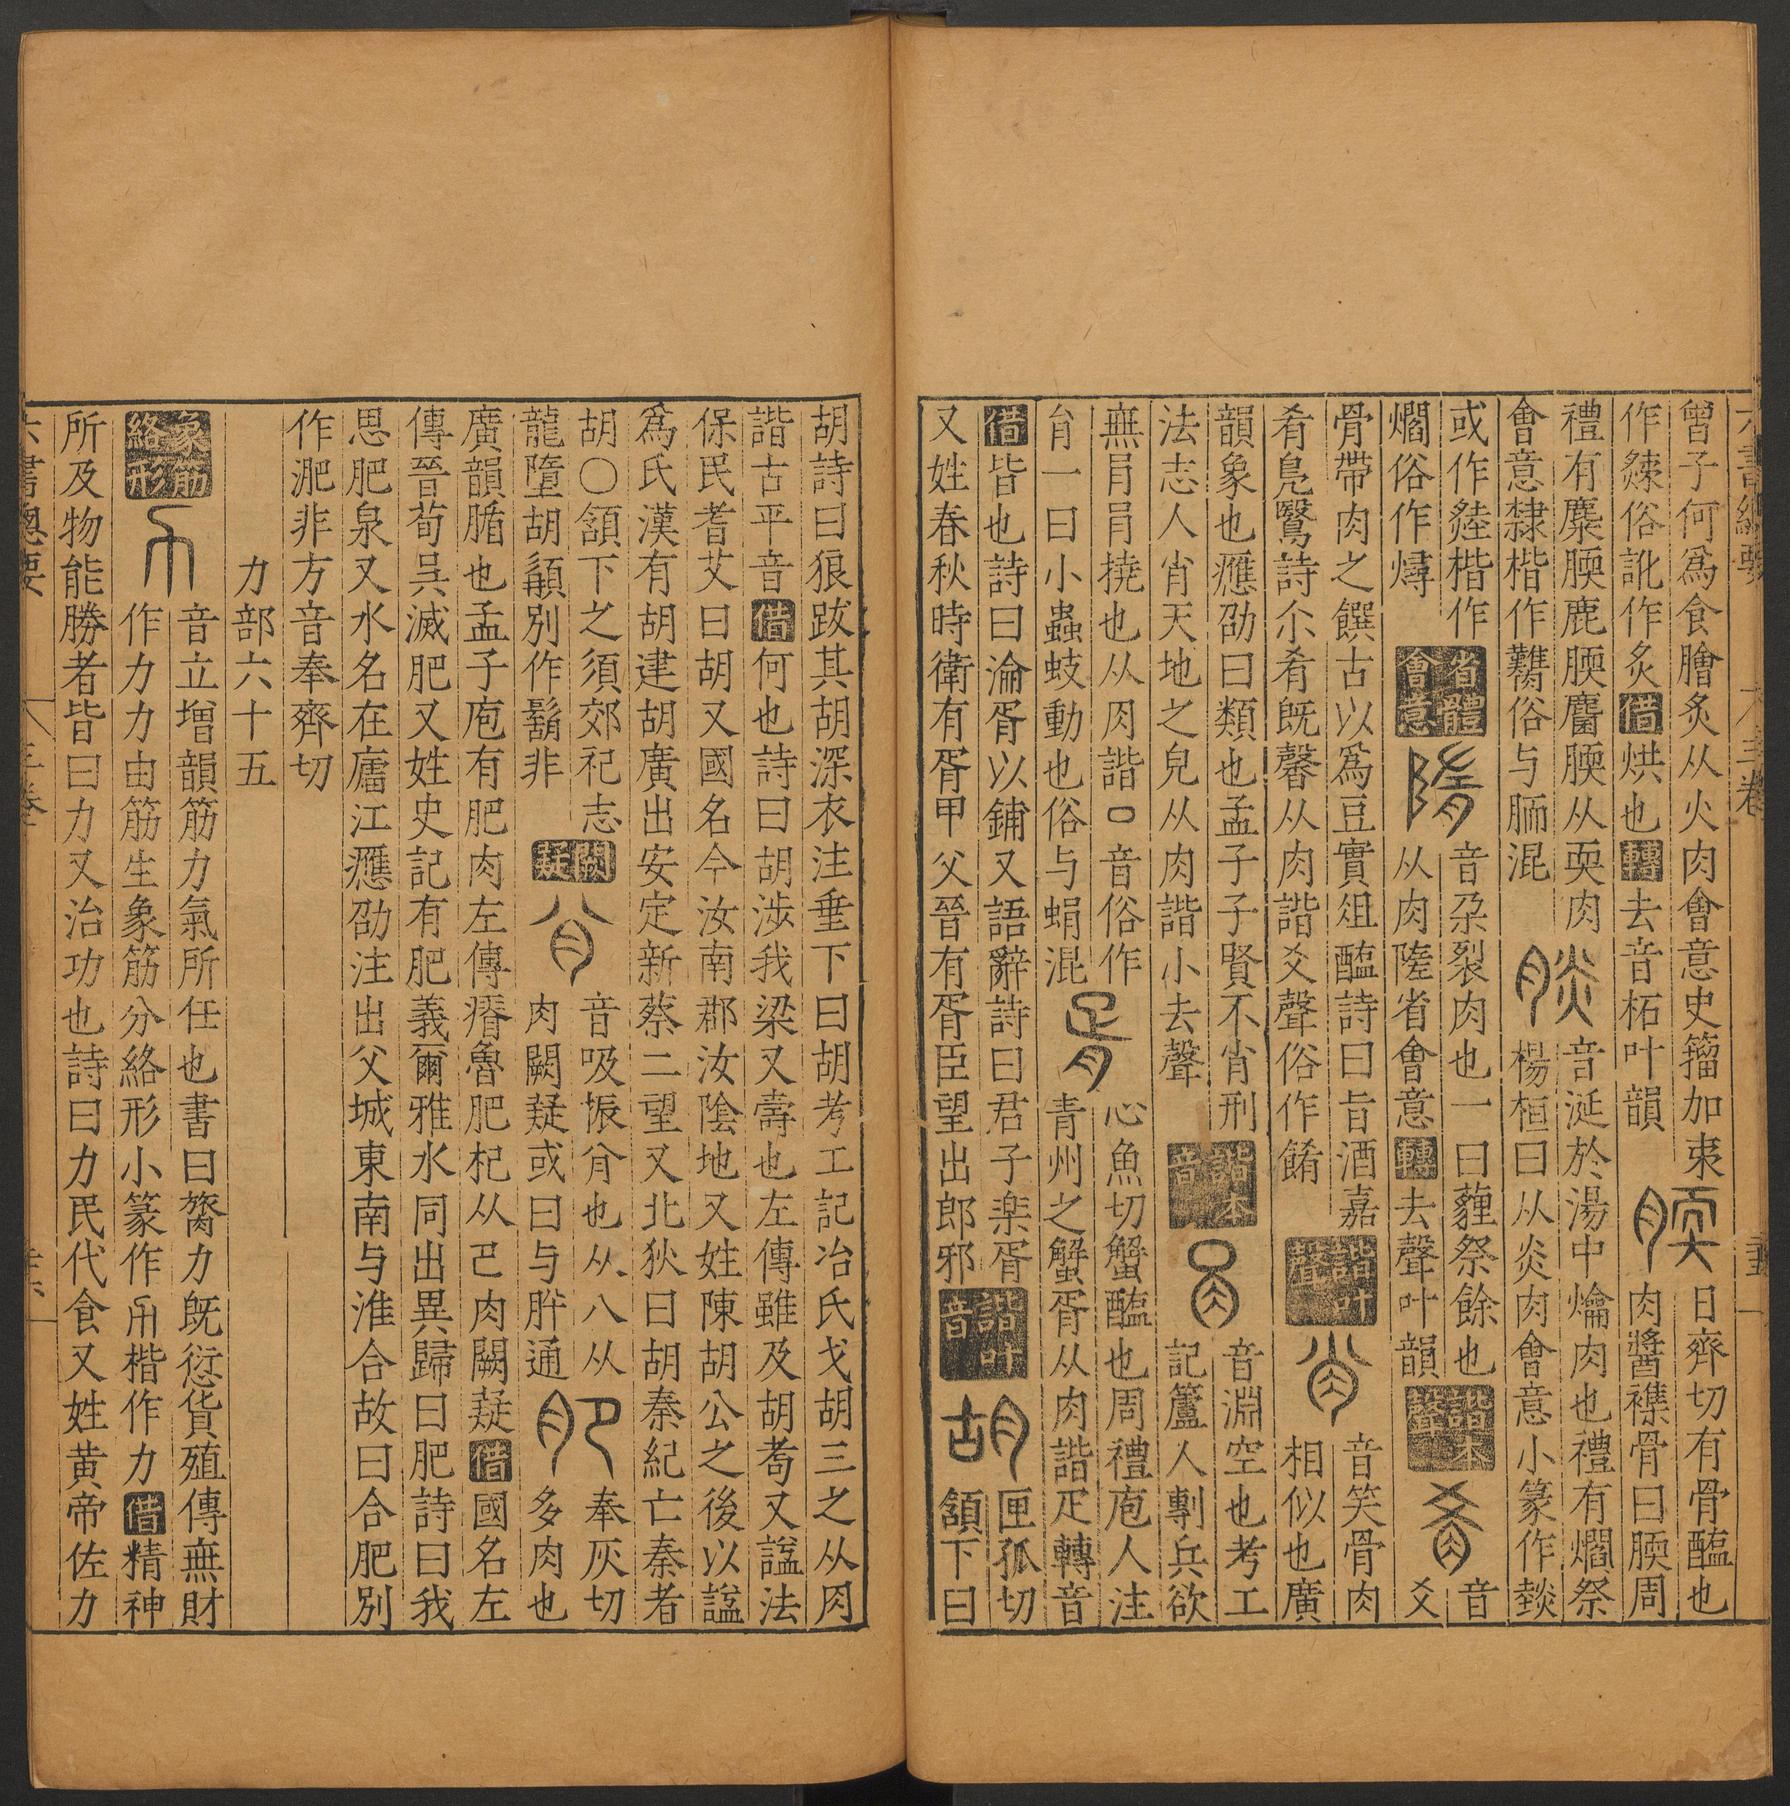 曾子何爲食膾炙从火肉會意史籀加柬
作煉俗訛作炙借烘也轉去音柘叶韻
腝日齊切有骨醢也
肉醬襍骨曰腝周
禮有麋腝鹿腝麕腝从耎肉
會意隸楷作臡俗与胹混
音涎於湯中爚肉也禮有爓祭
楊桓曰从炎肉會意小篆作
或作楷作
爓俗作燖
省體會意
音朶裂肉也一曰薶祭餘也
从肉隓省會意轉去聲叶韻
諧本聲
肴
音
爻
骨帶肉之饌古以爲豆實俎醢詩曰旨酒嘉
肴鳧鷖詩尒肴旣馨从肉諧爻聲俗作餚
諧叶聲
肖
音笑骨肉
相似也廣
韻象也應劭曰類也孟子子賢不肖刑
法志人肖天地之皃从肉諧小去聲
諧本音
肙
音淵空也考工
記廬人剸兵欲
無肙肙撓也从肉諧口音俗作
肙一曰小蟲蚑動也俗与蜎混
胥
心魚切蟹醢也周禮庖人注
青州之蟹胥从肉諧疋轉音
借皆也詩曰淪胥以鋪又語辭詩曰君子楽胥
又姓春秋時衛有胥甲父晉有胥臣望出郎邪
諧叶音
胡
匣孤切
頷下曰
胡詩曰狼跋其胡深衣注垂下曰胡考工記冶氏戈胡三之从肉
諧古平音借何也詩曰胡涉我梁又壽也左傳雖及胡耉又諡法
保民耆艾曰胡又國名今汝南郡汝陰地又姓陳胡公之後以諡
爲氏漢有胡建胡廣出安定新蔡二望又北狄曰胡秦紀亡秦者
胡〇頷下之須郊祀志
龍墮胡䫇別作鬍非
闕疑
音吸振肸也从八从
肉闕疑或曰与肸通
肥
奉灰切
多肉也
廣韻腯也孟子庖有肥肉左傳瘠魯肥杞从巴肉闕疑借國名左
傳晉荀吳滅肥又姓史記有肥義爾雅水同出異歸曰肥詩曰我
思肥泉又水名在廬江應劭注出父城東南与淮合故曰合肥別
作淝非方音奉齊切
力部六十五
象筋絡形
音立增韻筋力氣所任也書曰膂力旣愆貨殖傳無財
作力力由筋生象筋分絡形小篆作楷作力借精神
所及物能勝者皆曰力又治功也詩曰力民代食又姓黄帝佐力
六書總要
三卷